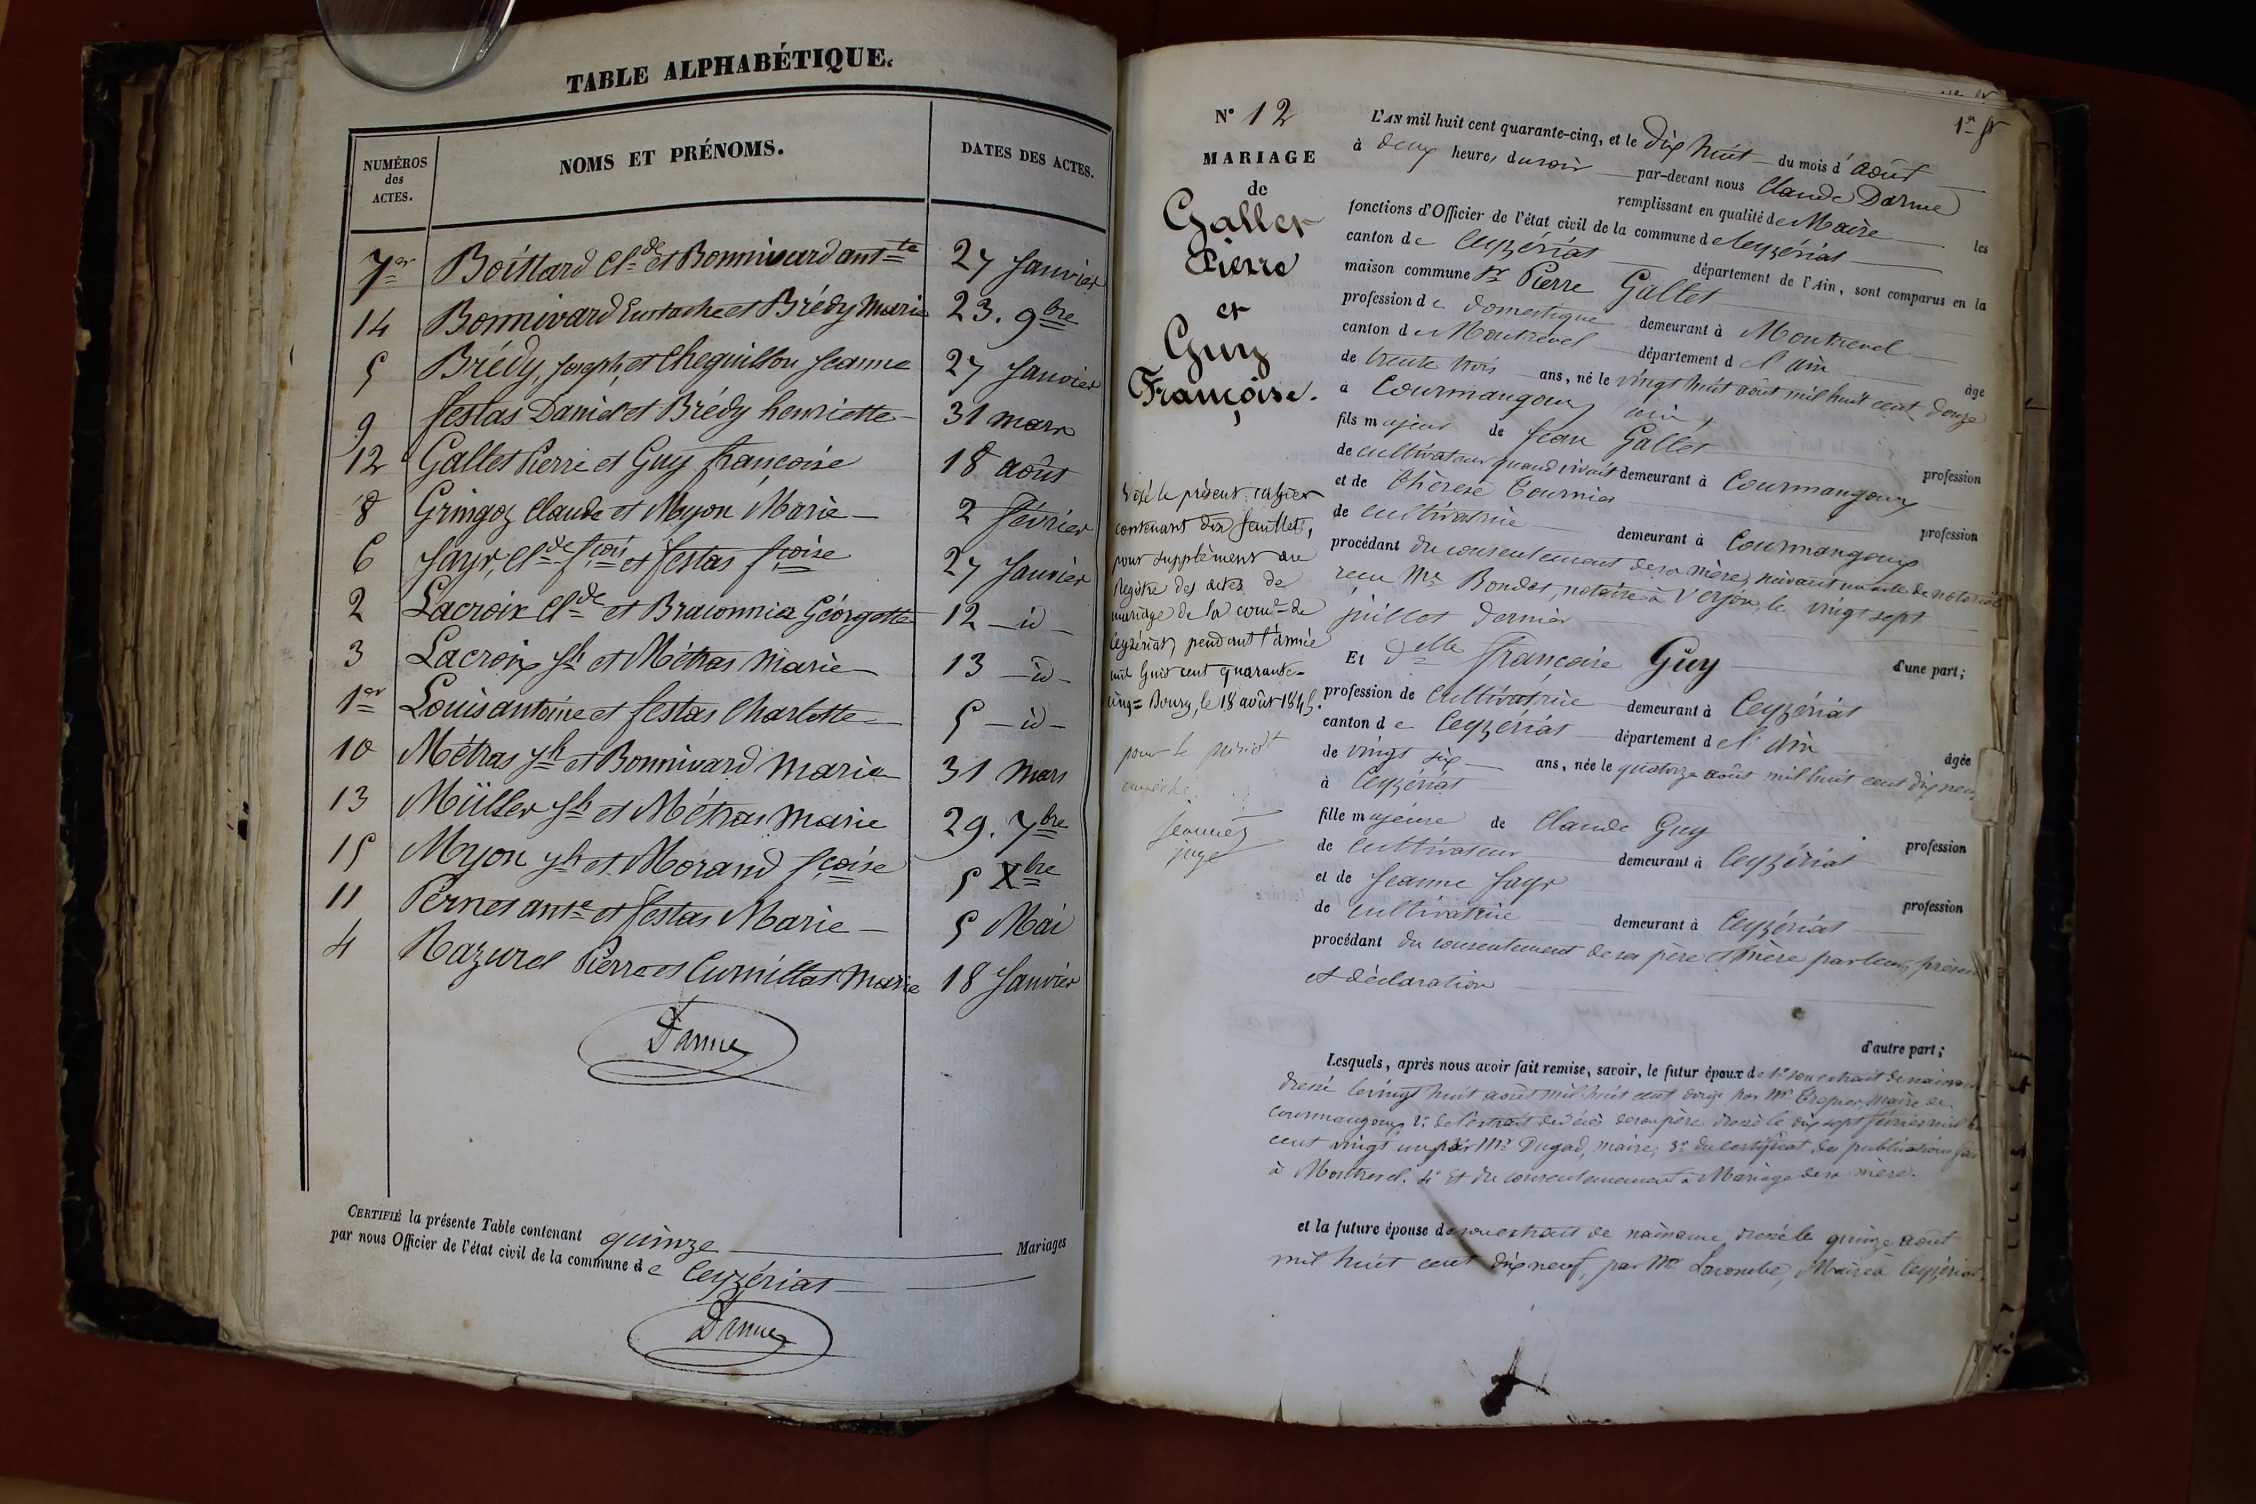 TABLE ALPHABÉTIQUE.
NUMÉROS des ACTES.
NOMS ET PRÉNOMS.
DATES DES ACTES.
7 Boittard Cl.de et Bonnivard ant.te 27 Janvier
14 Bonnivard Eustache et Brédy Marie 23. 9bre
5 Brédy, Joseph, et Cheguillon Jeanne 27 Janvier
9 festas Daniel et Brédy henriette 31 mars
12 Gallet Pierre et Guy françoise 18 août
8 Gringoz Claude et Myon Marie 2 février
6 Jayr, Cl.de f.çois et festas f.çoise 27 Janvier
2 Lacroix Cl.de et Braconnier Géorgette 12 _ id _
3 Lacroix Jh et Métras Marie 13 _ id _
1er Louis antoine et festas Charlotte 5 _ id _
10 Métras Jh et Bonnivard Marie 31 Mars
13 Müller Jh et Métras Marie 29. 7bre
15 Myon Jh et Morand f.çoise 5 Xbre
11 Pernet ant.e et festas Marie 5 Mai
4 Razurel Pierre et Cumillat Marie 18 Janvier
Darme
CERTIFIÉ la présente Table contenant quinze Mariages
par nous Officier de l'état civil de la commune de Ceyzériat
Darme
1er fr
N° 12
MARIAGE
de
Gallet
Pierre
et
Guy
Françoise.
Coté le présent cahier
contenant dix feuillets,
pour supplément au
Registre des actes de
mariage de la com.e de
Ceyzériat, pendant l'année
mil huit cent quarante-
cinq = Bourg, le 18 août 1845.
pour le présid.t
empêché
juge
L'AN mil huit cent quarante-cinq, et le dix huit du mois d'août
à deux heures du soir par-devant nous Claude Darme
remplissant en qualité de Maire les
fonctions d'Officier de l'état civil de la commune de Ceyzériat
canton de Ceyzériat département de l'Ain, sont comparus en la
maison commune Sr Pierre Gallet
profession de domestique demeurant à Montrevel
canton de Montrevel département de l'ain âgé
de trente trois ans, né le vingt huit août mil huit cent douze
à Courmangoux (ain)
fils majeur de Jean Gallet profession
de cultivateur quand vivait demeurant à Courmangoux
et de Thérèse Tournier profession
de cultivatrice demeurant à Courmangoux
procédant du consentement de sa mère, suivant un acte de notoriété
reçu Mre Bondet, notaire à Verjon, le vingt sept
juillet dernier
d'une part;
Et delle françoise Guy
profession de cultivatrice demeurant à Ceyzériat
canton de Ceyzériat département de l'ain âgée
de vingt six ans, née le quatorze août mil huit cent dix neuf
à Ceyzériat
fille majeure de Claude Guy profession
de cultivateur demeurant à Ceyzériat
et de Jeanne Jayr profession
de cultivatrice demeurant à Ceyzériat
procédant du consentement de ses père et mère par leur présence
et déclaration
d'autre part;
Lesquels, après nous avoir fait remise, savoir, le futur époux de 1° son extrait de naissance
dressé le vingt huit août mil huit cent douze par Mr maire de
Courmangoux 2° de l'extrait de décès de son père dressé le dix sept février mil huit
cent vingt un par Mr Dugad, maire, 3° du certificat des publications faites
à Montrevel. 4° Et du consentement à Mariage de sa mère.
et la future épouse de son extrait de naissance dressé le quinze août
mil huit cent dix neuf, par Mr Lacombe, Maire à Ceyzériat,